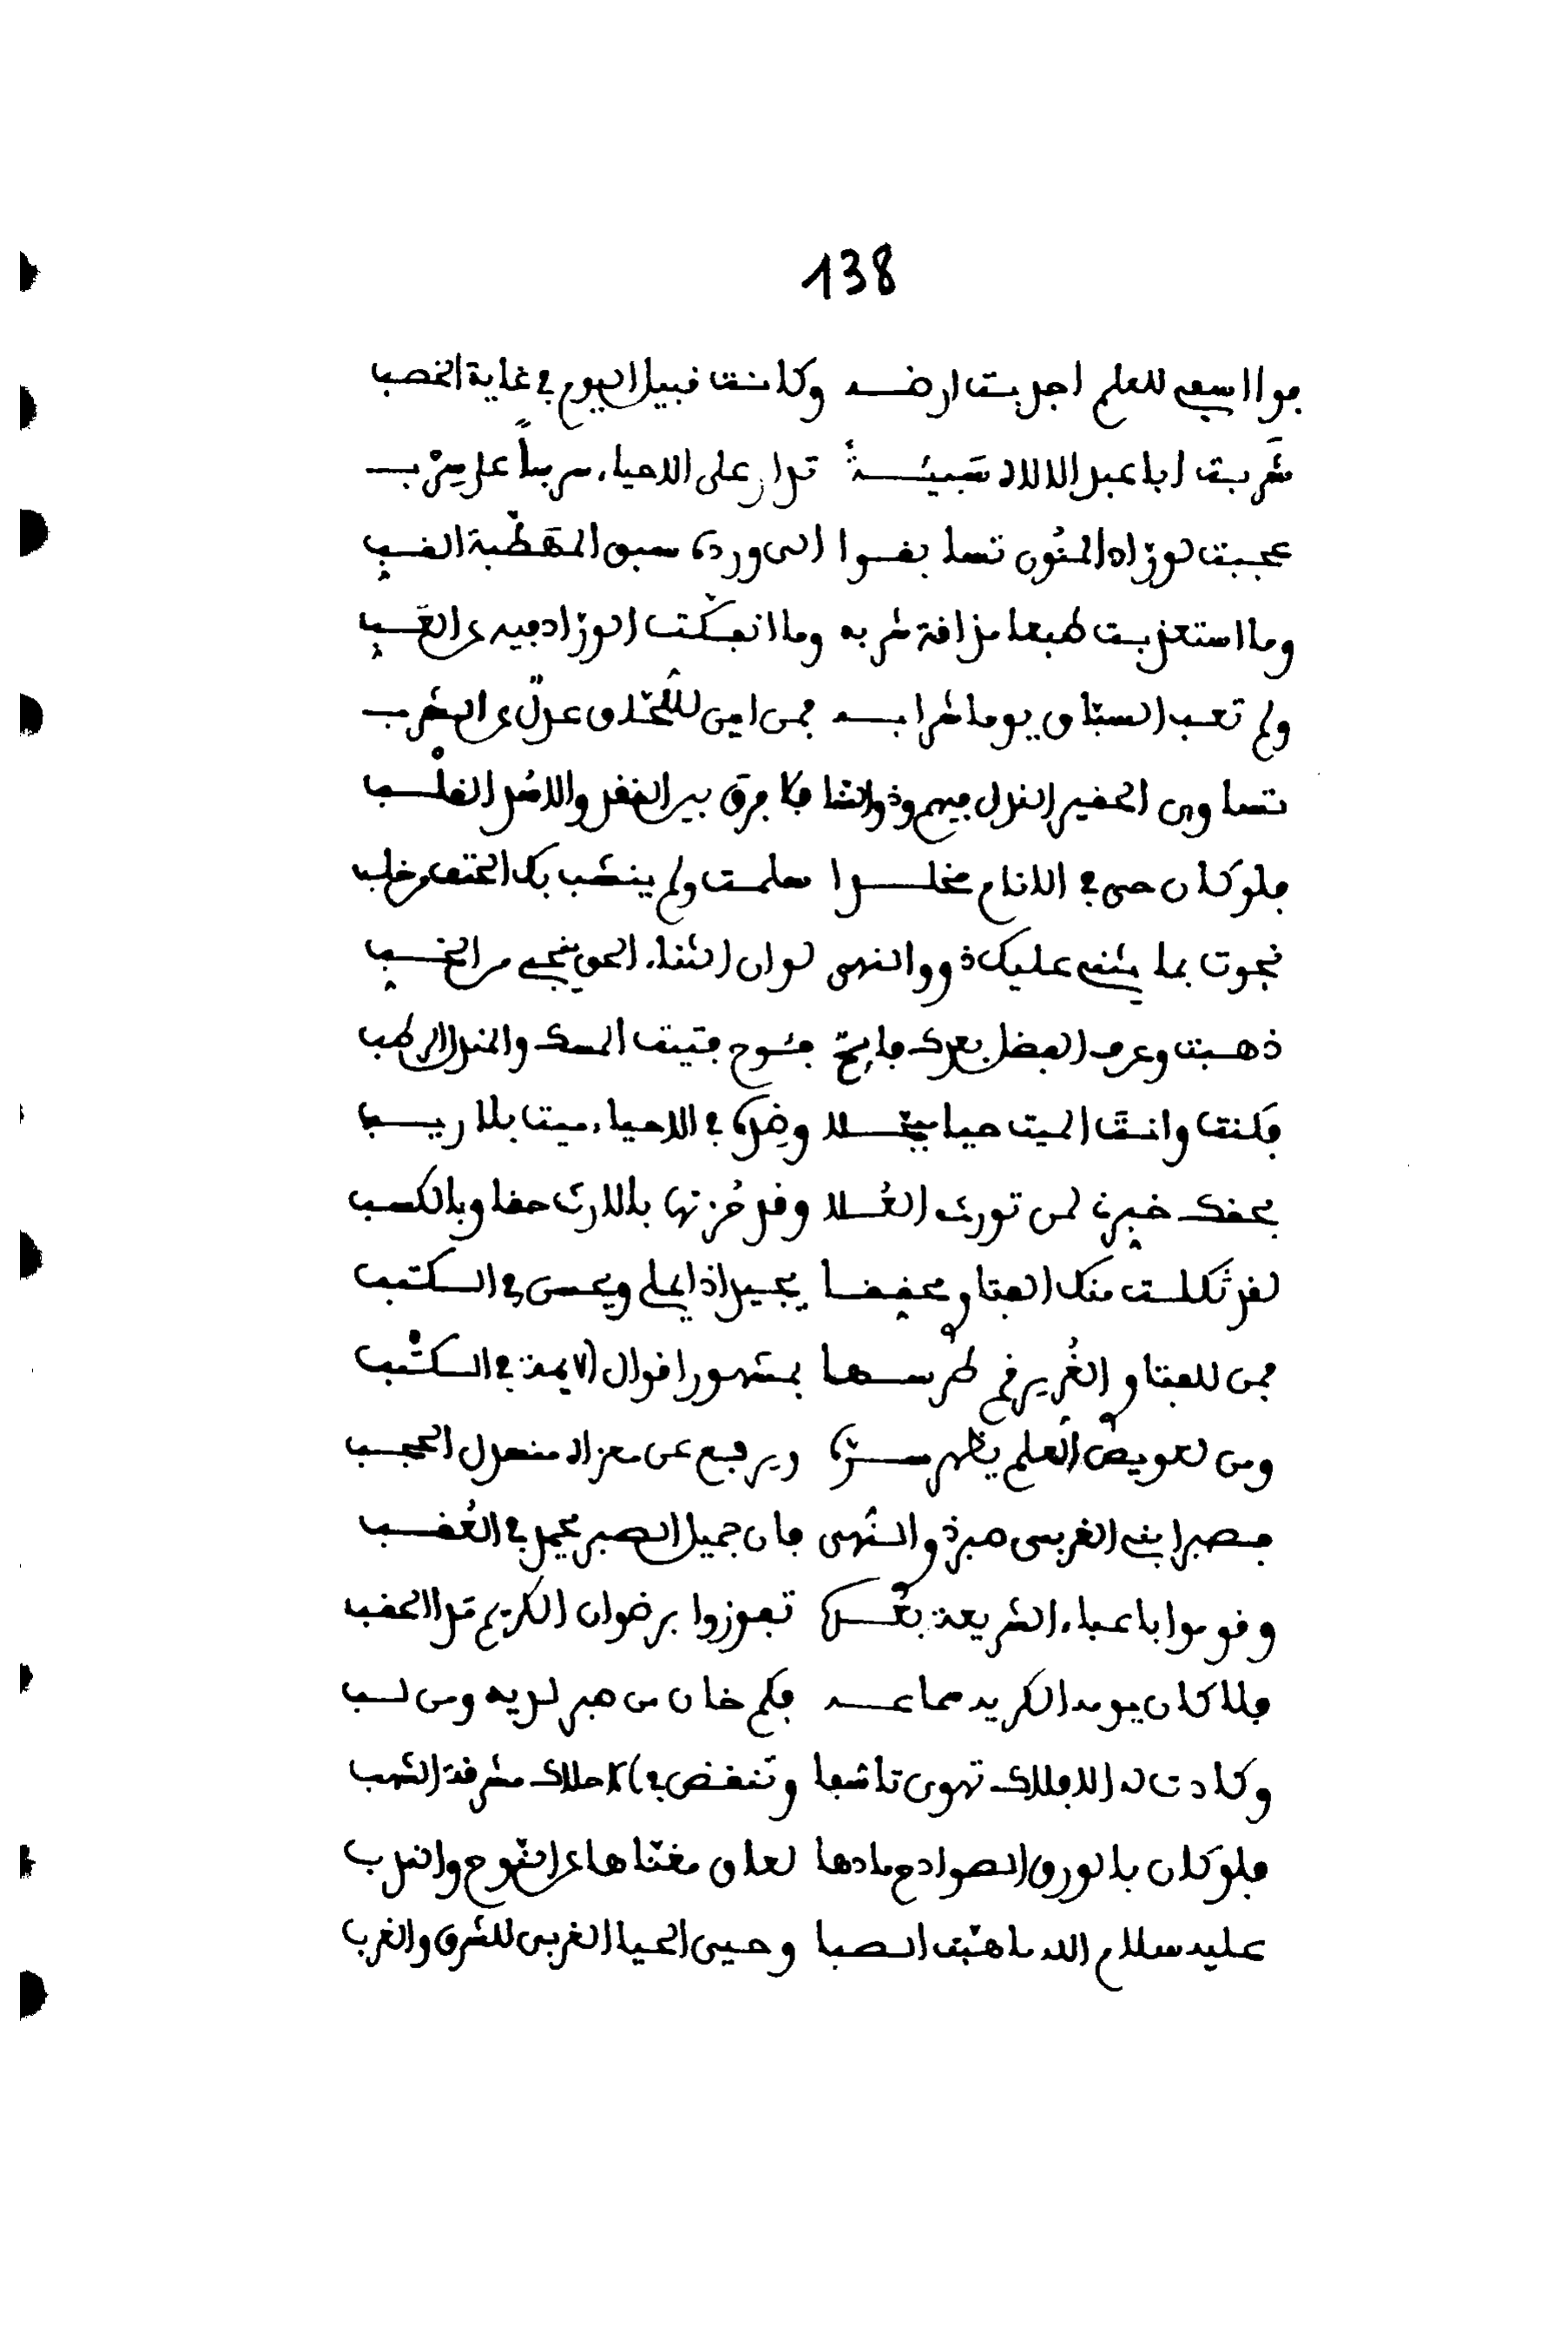 138
فوا اسفي للعلم اجدبت ارضه وكانت قبيل اليوم في غاية الخصب
شربت ابا عبد الالاه شبيئة تدار على الاحياء سربا على سرب
عجبت لوراد المنون تسابقوا الى وردها سبق المقطبة القب
وما استعذبت طبعا مذاقة شربه وما انفكت الوراد فيه عن العب
ولم تعب السباق يوما شرابه فمن اين للحذاق عدل عن الشرب
تساوى الحقير النذل فيهم وذو النثا فلا فرق بين الغفر والاسد الغلب
فلو كان حي في الانام مخلدا سلمت ولم ينشب بك الحتف من خلب
نجوت بما يثني عليك ذوو النهى لو ان الثناء الحق ينجي من النحب
ذهبت وعرف الفضل بعدك فايح يفوح فتيت المسك والمندل الرطب
فكنت وانت الميت حيا مبجلا وضدك في الاحياء ميتا بلا ريب
بحقك خبرنا لمن تورث العلا وقد حزتها بالارث حقا وبالكسب
لقد ثكلت منك الفتاوي محققا يجيد اذا يملي ويحسن في الكتب
فمن للفتاوي الغر يرقم طرسها بمشهور اقوال الايمة في الكتب
ومن لعويص العلم يظهر سرها ويرفع عن معناه منسدل الحجب
فصبرا بني الغربي صبر ذوي النهى فان جميل الصبر يجمل في العقب
وقوموا باعباء الشريعة بعده تفوزوا برضوان الكريم مدا الحقب
فلا كان يومه الكريه سماعه فكم خان من صبر لديه ومن لب
وكادت له الافلاك تهوي تاسفا وتنقض في الاحلاك مشرقة الشهب
فلو كان بالورق الصوادح ما دها لعاق مغناها عن النوح والندب
عليه سلام الله ما هبت الصبا وحيى الحيا الغربي للشرق والغرب